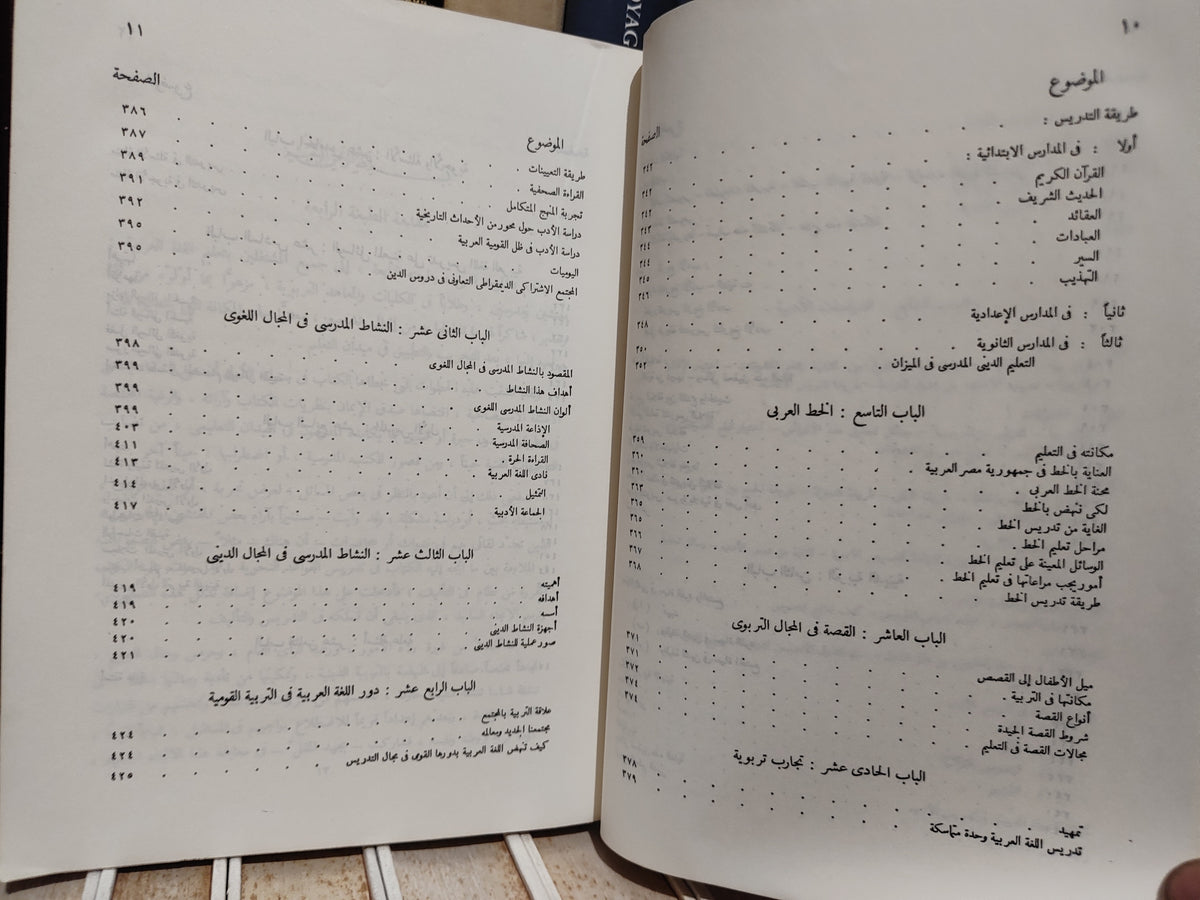 ١٠
الموضوع
الصفحة
طريقة التدريس :
أولا : فى المدارس الابتدائية : ٢٤٢
القرآن الكريم ٢٤٢
الحديث الشريف ٢٤٢
العقائد ٢٤٣
العبادات ٢٤٤
السير ٢٤٤
التهذيب ٢٤٥
٢٤٦
ثانياً : فى المدارس الإعدادية ٢٤٨
ثالثاً : فى المدارس الثانوية ٢٥٠
التعليم الدينى المدرسى فى الميزان ٢٥٢
الباب التاسع : الخط العربى
مكانته فى التعليم ٣٥٩
العناية بالخط فى جمهورية مصر العربية ٣٦٠
محنة الخط العربى ٣٦٠
لكى تنهض بالخط ٣٦٣
الغاية من تدريس الخط ٣٦٥
مراحل تعليم الخط ٣٦٥
الوسائل المعينة على تعليم الخط ٣٦٦
أمور يجب مراعاتها فى تعليم الخط ٣٦٧
طريقة تدريس الخط ٣٦٨
الباب العاشر : القصة فى المجال التربوى
ميل الأطفال إلى القصص ٣٧١
مكانتها فى التربية ٣٧١
أنواع القصة ٣٧٢
شروط القصة الجيدة ٣٧٤
مجالات القصة فى التعليم ٣٧٤
الباب الحادى عشر : تجارب تربوية
تمهيد ٣٧٨
تدريس اللغة العربية وحدة متماسكة ٣٧٩
١١
الصفحة
الموضوع
طريقة التعيينات ٣٨٦
القراءة الصحفية ٣٨٧
تجربة المنهج المتكامل ٣٨٩
دراسة الأدب حول محور من الأحداث التاريخية ٣٩١
دراسة الأدب فى ظل القومية العربية ٣٩٢
اليوميات ٣٩٥
المجتمع الاشتراكى الديمقراطى التعاونى فى دروس الدين ٣٩٥
الباب الثانى عشر : النشاط المدرسى فى المجال اللغوى
المقصود بالنشاط المدرسى فى المجال اللغوى ٣٩٨
أهداف هذا النشاط ٣٩٩
ألوان النشاط المدرسى اللغوى ٣٩٩
الإذاعة المدرسية ٣٩٩
الصحافة المدرسية ٤٠٣
القراءة الحرة ٤١١
نادى اللغة العربية ٤١٣
التمثيل ٤١٤
الجماعة الأدبية ٤١٧
الباب الثالث عشر : النشاط المدرسى فى المجال الدينى
أهميته ٤١٩
أهدافه ٤١٩
أسسه ٤٢٠
أجهزة النشاط الدينى ٤٢٠
صور عملية للنشاط الدينى ٤٢١
الباب الرابع عشر : دور اللغة العربية فى التربية القومية
علاقة التربية بالمجتمع ٤٢٤
مجتمعنا الجديد ومعالمه ٤٢٤
كيف تنهض اللغة العربية بدورها القومى فى مجال التدريس ٤٢٥